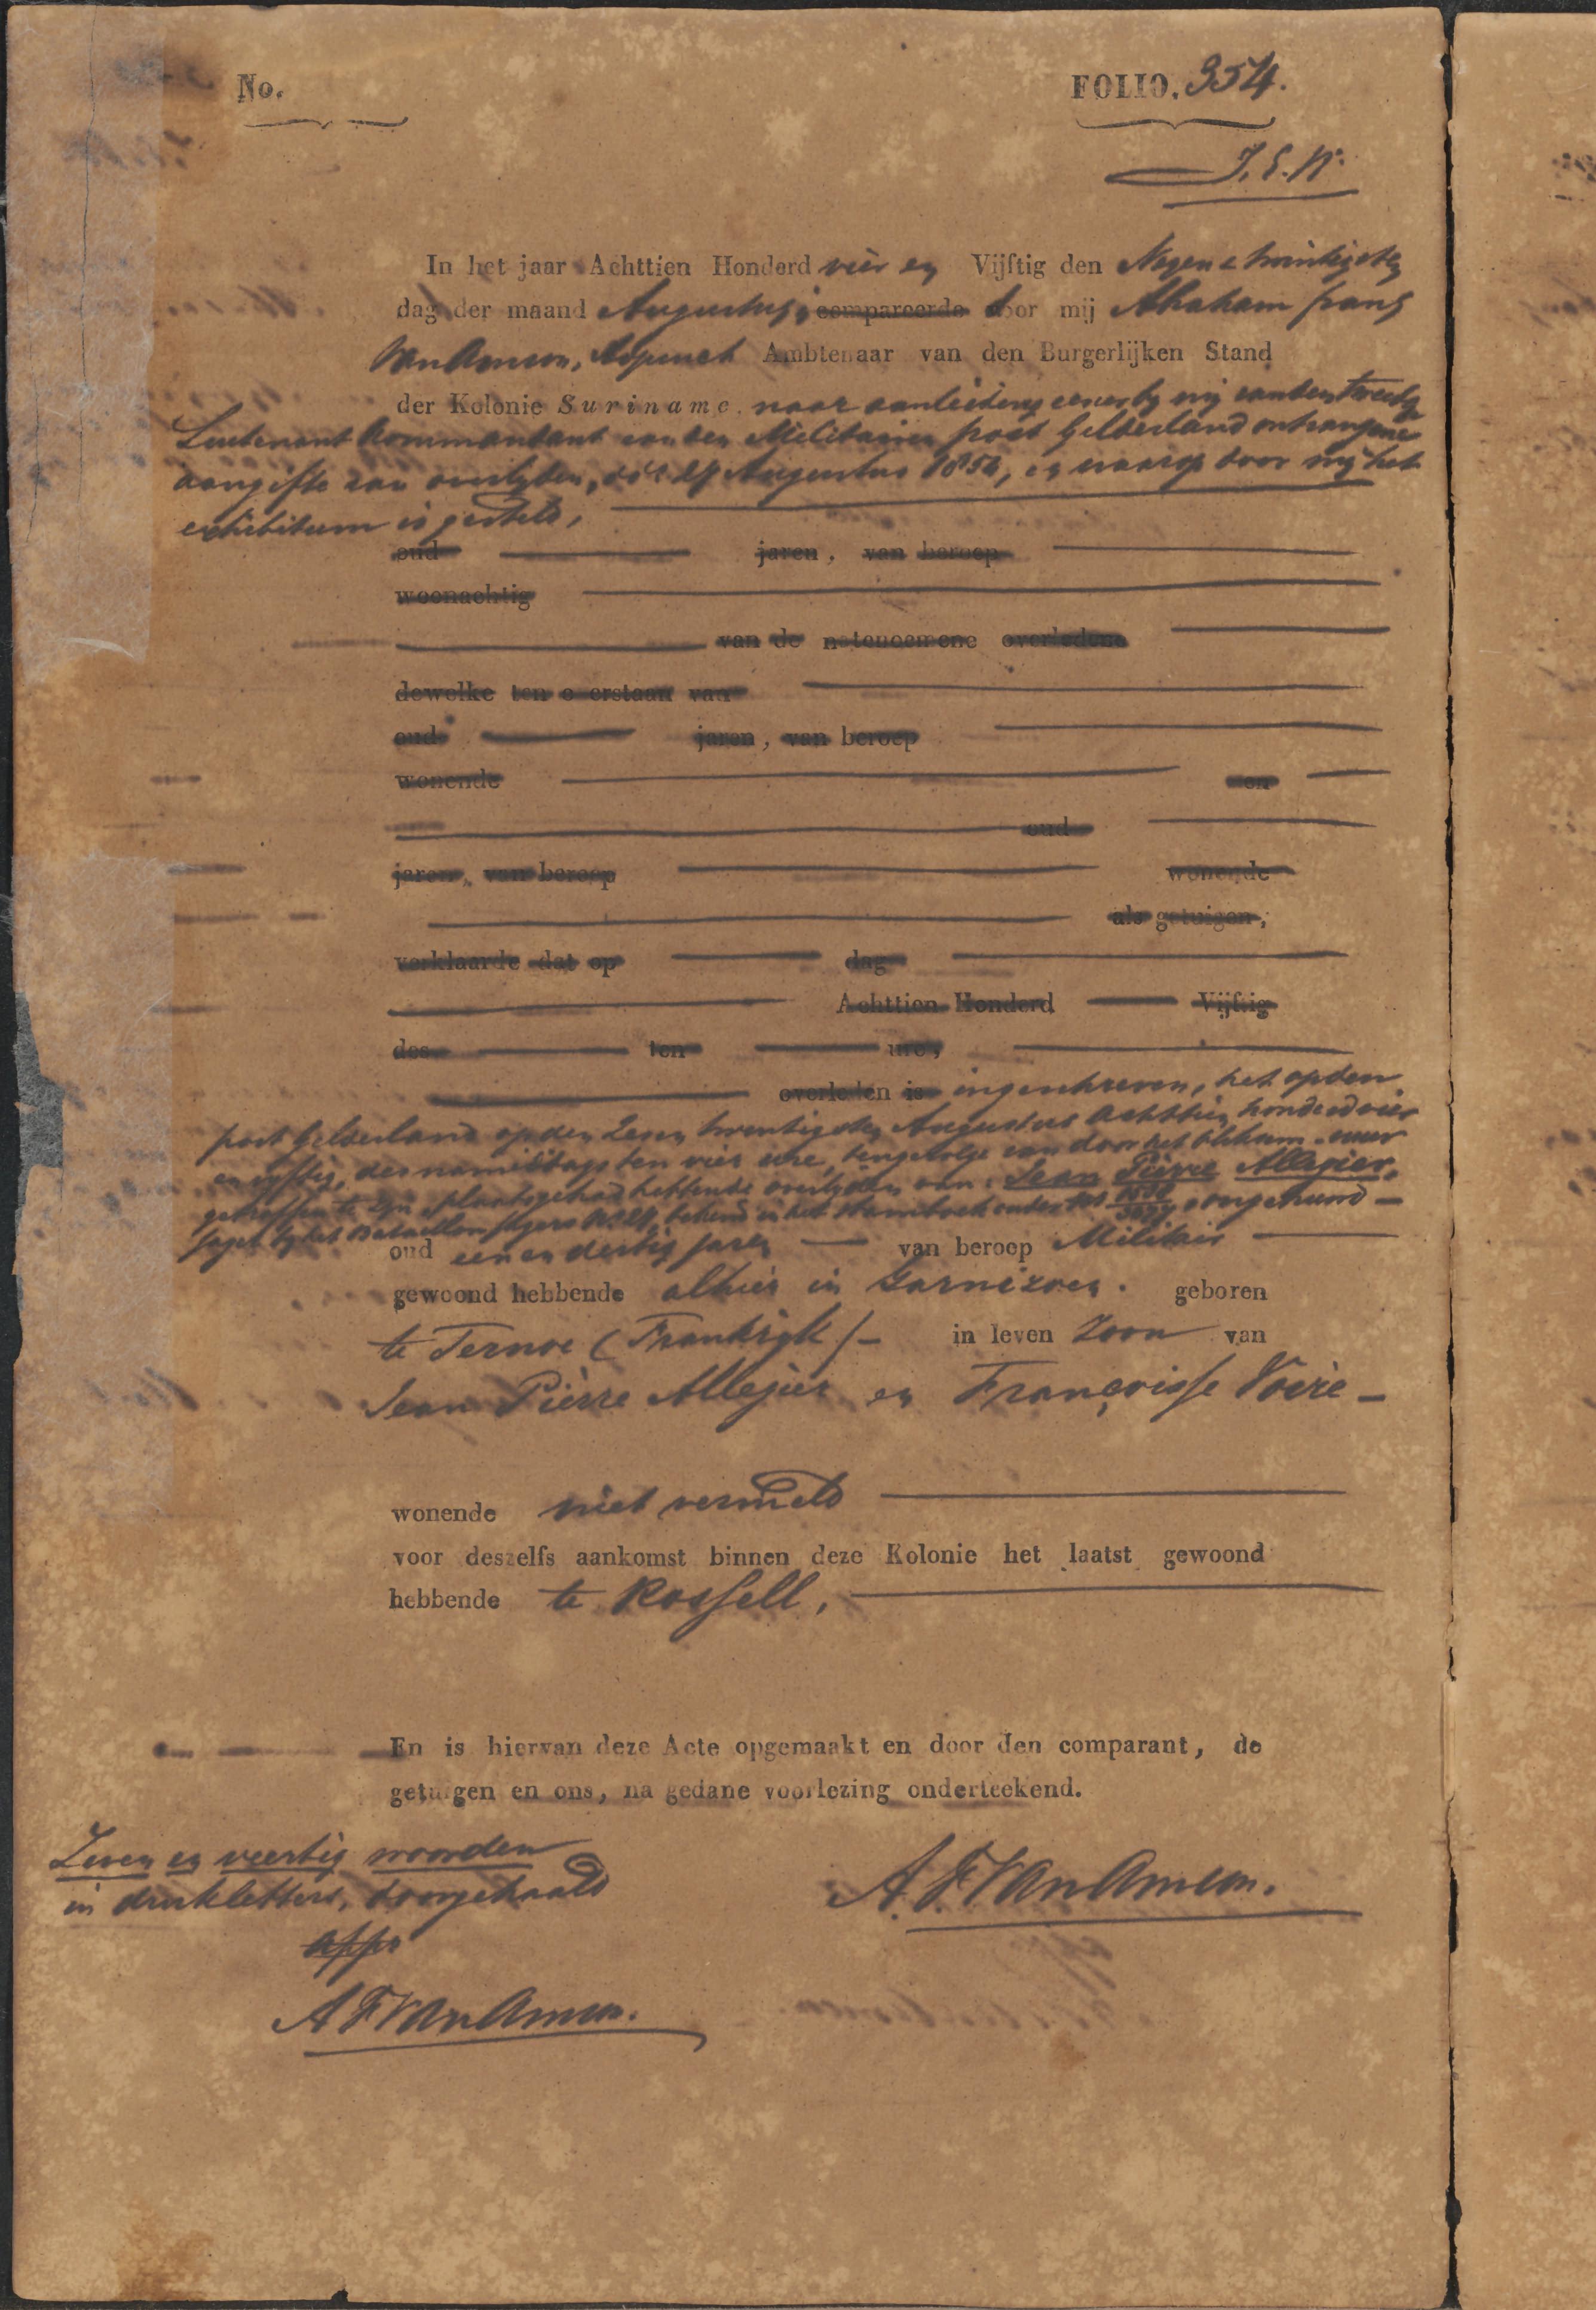 No.
FOLIO. 354.
J. E. N.
In het jaar Achttien Honderd vier en Vijftig den Negen & twintigsten
dag der maand Augustus, compareerde door mij Abraham frans
Van Ameron, Adjunct Ambtenaar van den Burgerlijken Stand
der Kolonie Suriname, naar aanleiding eener by mij van den tweede
Luitenant Kommandant van den Militairen post Gelderland ontvangene
aangifte van overlyden, d.d. 27 Augustus 1854, en waarop door mij het
exhibitum is gesteld,
oud jaren, van beroep
woonachtig
van de natenoemene overledene
dewelke ten overstaan van
oud jaren, van beroep
wonende en
oud
jaren, van beroep wonende
als getuigen,
verklaarde dat op dag
Achttien Honderd Vijftig
des ten ure,
overleden is ingeschreven, het op den
post Gelderland op den Zeven twentigsten Augustus Achttien honderd vier
en vyftig, des namiddags ten vier ure, tengevolge van door het bliksem vuur
getroffen te zyn plaatsgehad hebbende overlyden van: Jean Pierre Allegier,
Jager by het Bataillon Jagers No. 27, bekend in het Stamboek onder ongehuwd
oud een en dertig jaren van beroep Militair
gewoond hebbende alhier in Garnizoen. geboren
te Ternoe (Frankrijk) in leven Zoon van
Jean Pierre Allegier en Françoisse Voire
wonende niet vermeld
voor deszelfs aankomst binnen deze Kolonie het laatst gewoond
hebbende te Rossell,
En is hiervan deze Acte opgemaakt en door den comparant, de
getuigen en ons, na gedane voorlezing onderteekend.
Zeven en veertig woorden
in drukletters, doorgehaald
A. F. Van Ameron.
appo
A F Van Ameron.